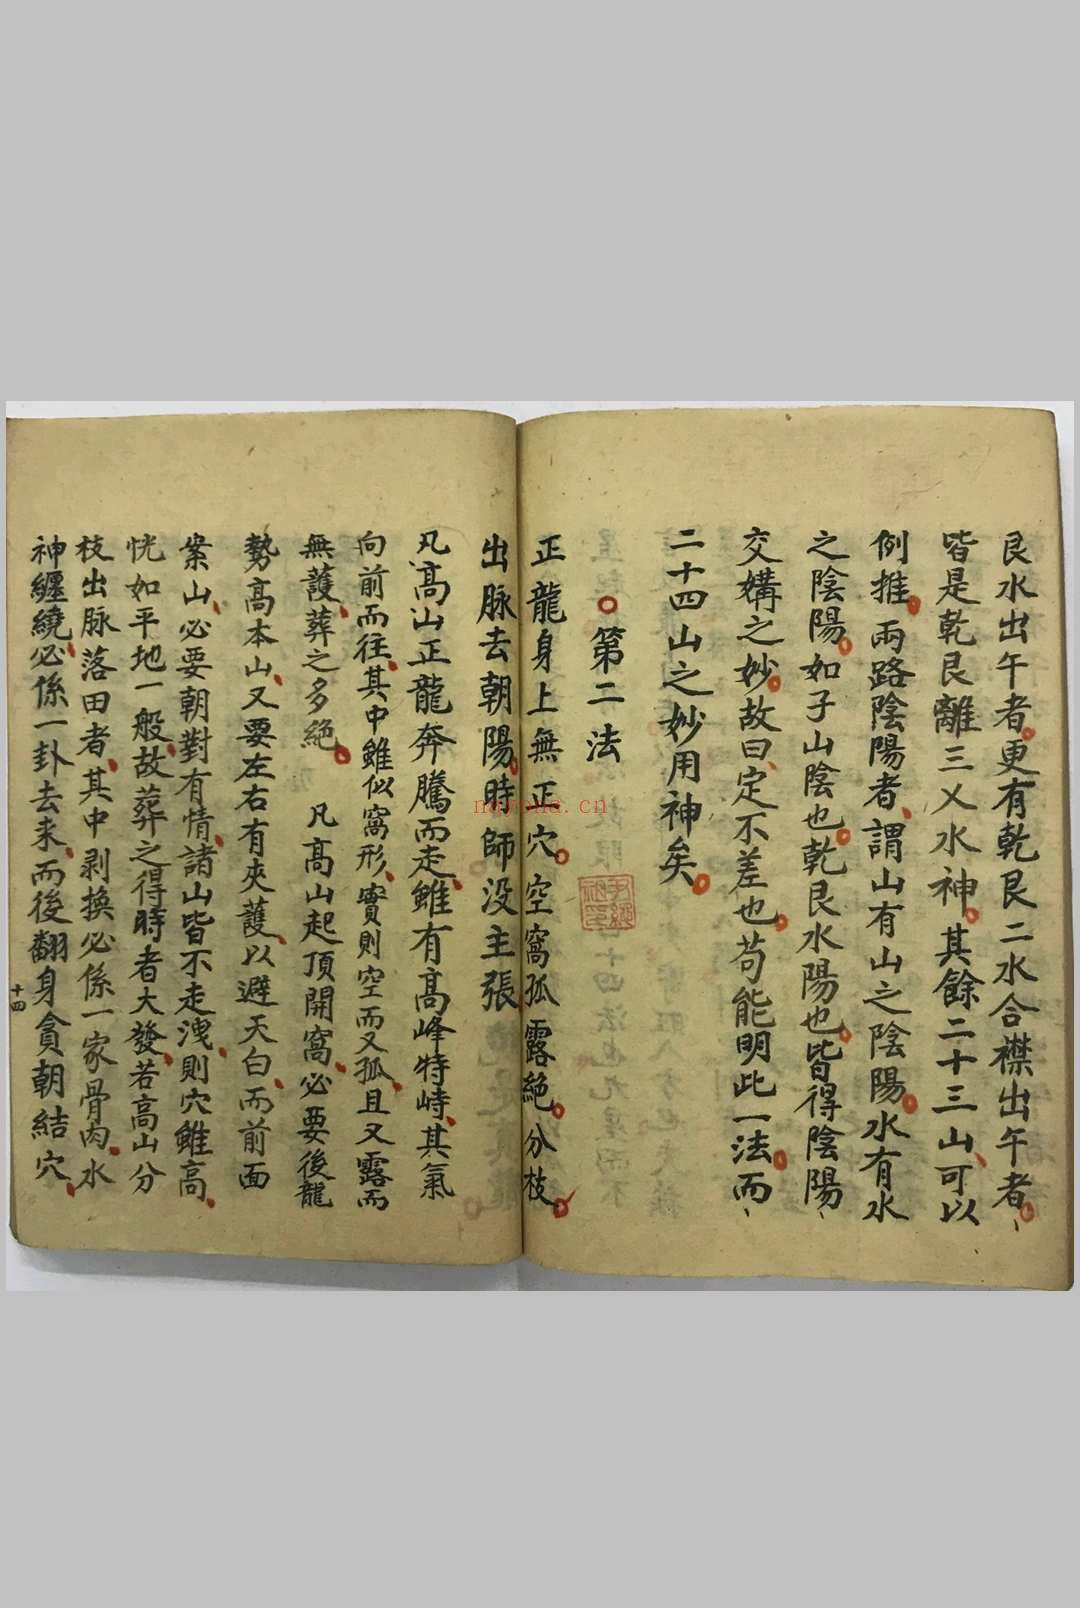 艮水出午者更有乾艮二水合襟出午者
皆是乾艮離三乂水神其餘二十三山可以
例推兩路陰陽者謂山有山之陰陽水有水
之陰陽如子山陰也乾艮水陽也皆得陰陽
交媾之妙故曰定不差也苟能明此一法而
二十四山之妙用神矣
第二法
正龍身上無正穴空窩孤露絶分枝
出脉去朝陽時師没主張
凡高山正龍奔騰而走雖有高峰特峙其氣
向前而往其中雖似窩形實則空而又孤且又露而
無護葬之多絕 凡高山起頂開窩必要後龍
勢高本山又要左右有夾護以避天白而前面
案山必要朝對有情諸山皆不走洩則穴雖高
恍如平地一般故葬之得時者大發若高山分
枝出脉落田者其中剥換必係一家骨肉水
神纏繞必係一卦去来而後翻身貪朝結穴
十四
nayona.cn